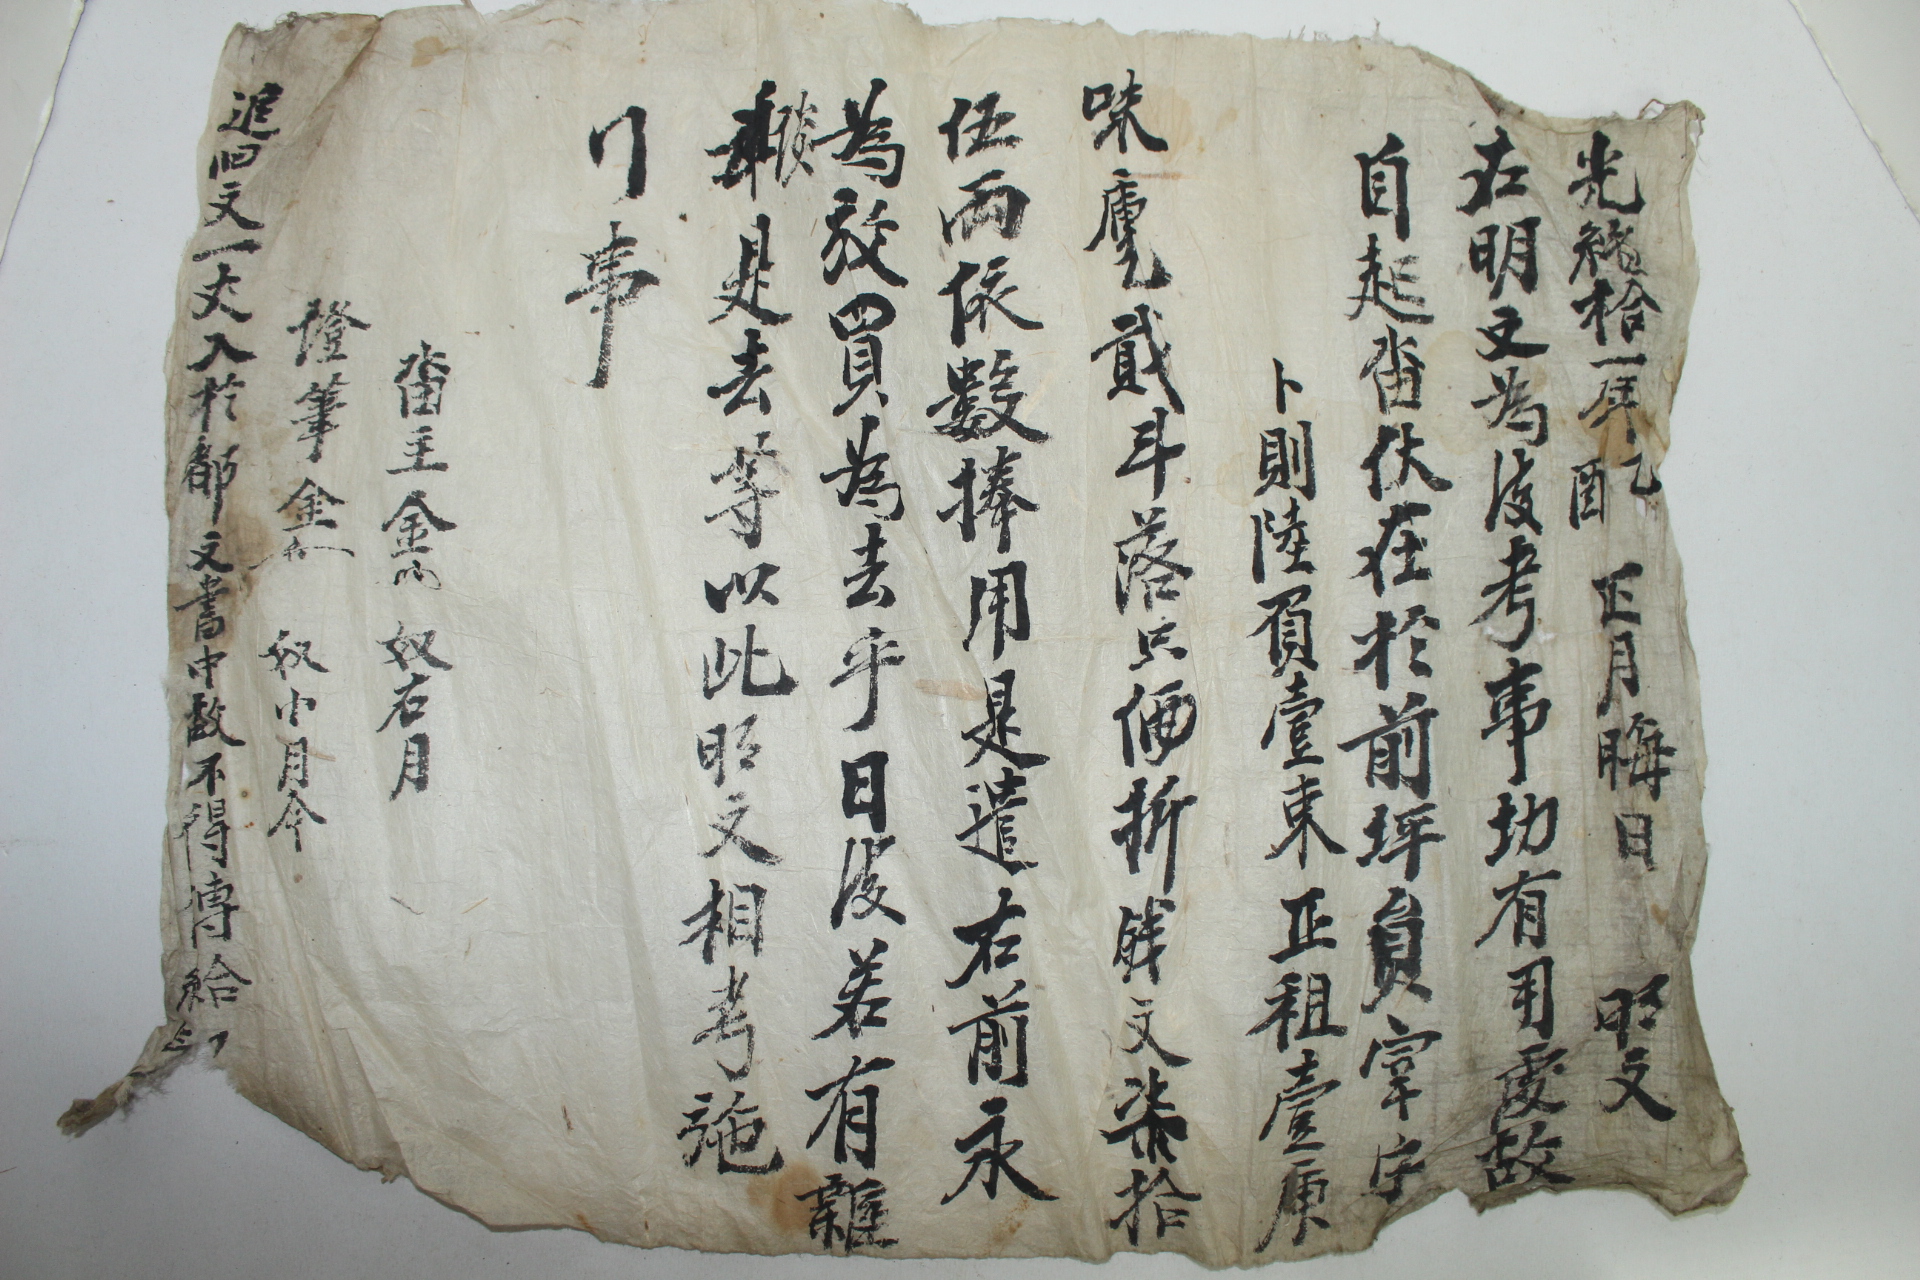 光緖拾一年乙酉 正月晦日 明文
右明文爲後考事切有用處故
自起畓伏在於前坪員字字
卜則陸負壹束正租壹
味 貳斗落只価折錢文柒拾
伍兩依數捧用是遣右前永
爲放買爲去乎日後若有雜
談是去等以此明文相考施
行事
畓主金 奴右月
證筆金 奴小月金
追旧文一丈入於都文書中故不得傳給